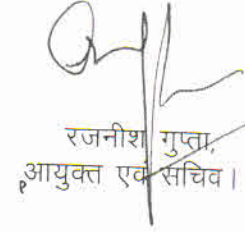 रजनीश गुप्ता,
आयुक्त एवं सचिव।